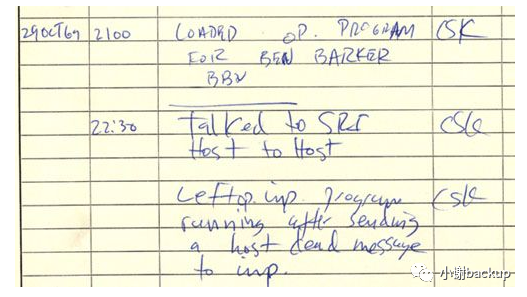 29OCT69 2100 LOADED OP. PROGRAM CSK
FOR BEN BARKER
BBN
22:30 Talked to SRI CSK
Host to Host
Left op. imp. program CSK
running after sending
a host dead message
to imp.
小谢backup